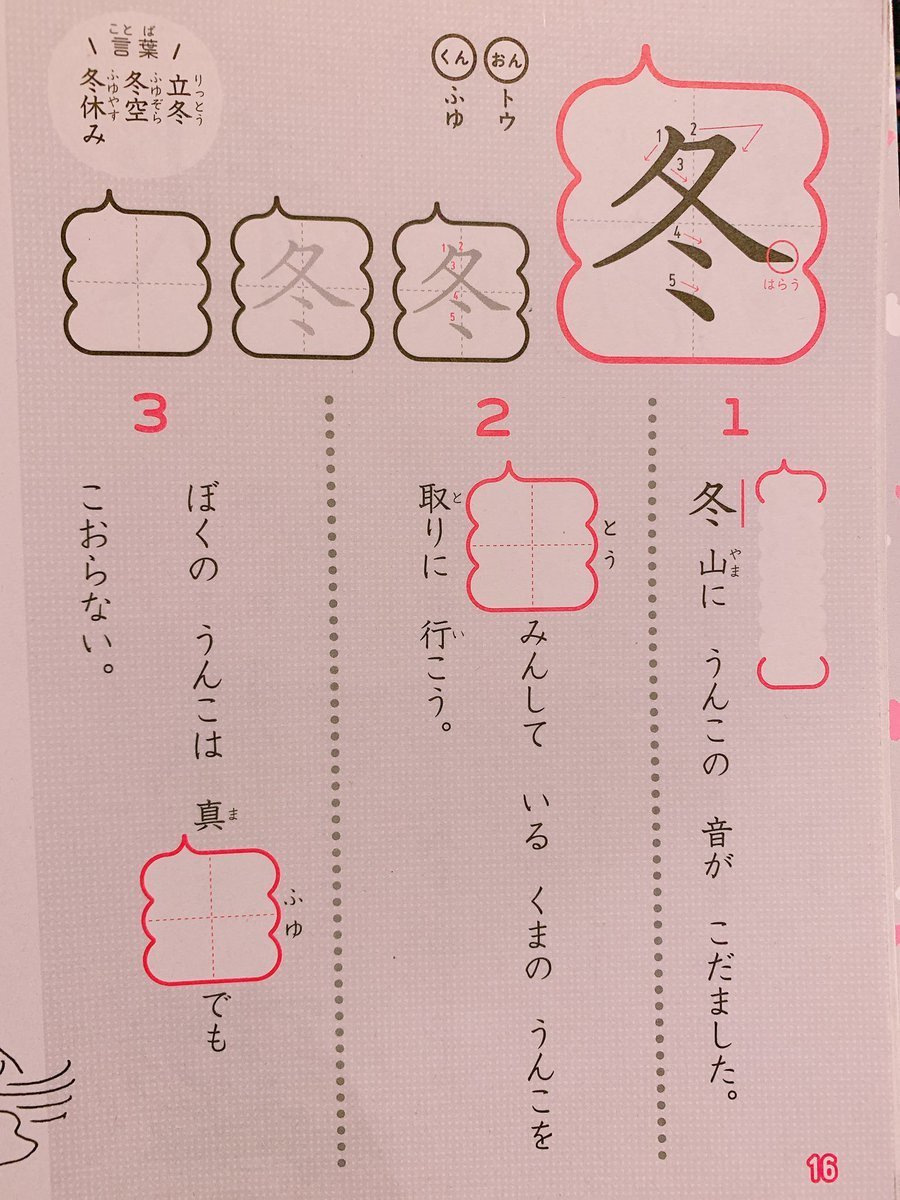 冬
1
2
3
4
5
はらう
おん
トウ
くん
ふゆ
ことば
言葉
りっとう
立冬
ふゆぞら
冬空
ふゆやす
冬休み
冬
1
2
3
4
5
冬
1
冬山に うんこの 音が こだました。
やま
2
とう
みんして いる くまの うんこを
取りに 行こう。
と
い
3
ぼくの うんこは 真
ま
ふゆ
でも
こおらない。
16